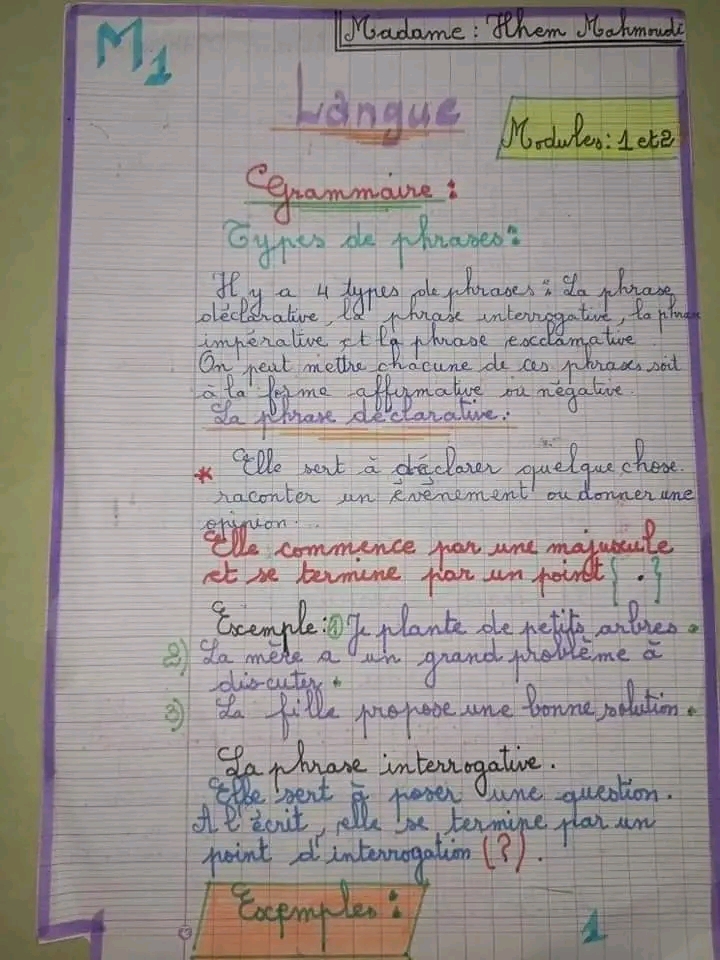 M1
Madame : Ilhem Mahmoudi
Langue
Modules : 1 et 2
Grammaire :
Types de phrases :
Il y a 4 types de phrases : La phrase
déclarative, la phrase interrogative, la phrase
impérative et la phrase exclamative
On peut mettre chacune de ces phrases soit
à la forme affirmative ou négative.
La phrase déclarative :
* Elle sert à déclarer quelque chose.
raconter un évènement ou donner une
opinion...
Elle commence par une majuscule
et se termine par un point { . }
Exemple : 1) Je plante de petits arbres.
2) La mère a un grand problème à
discuter.
3) La fille propose une bonne solution.
La phrase interrogative.
Elle sert à poser une question.
A l'écrit, elle se termine par un
point d'interrogation (?).
Exemples :
1